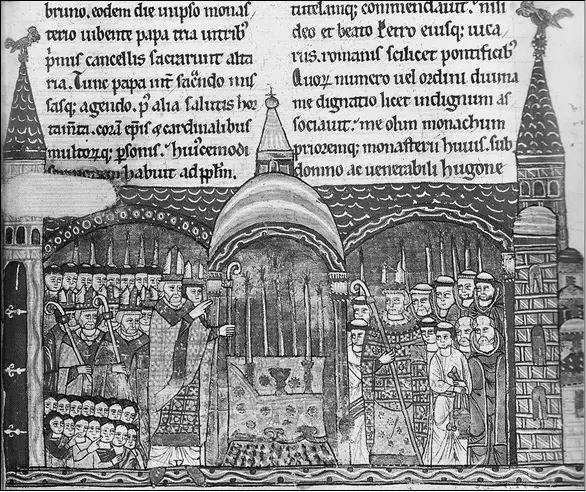 bruno. eodem die in ipso monas
terio iubente papa tria in tribꝰ
pͥmis cancellis sacrarunt alta
ria. Tunc papa int̄ sac̄ndo mis
sasq; agendo. p̄ alia salutis hor
tamta. corā ep̄is & cardinalibus
multorūq; p̲sonis. huiꝰcemodi
habuit ad pp̄lm.
tutelamq; commendauit. nili
deo et beato Petro eiusq; uica
riis. romanis scilicet pontificibꝰ
Quoꝝ numero uel ordini diuina
me dignatio licet indignum as
sociauit. me olim monachum
prioremq; monasterii huius. sub
domno ac uenerabili hugone